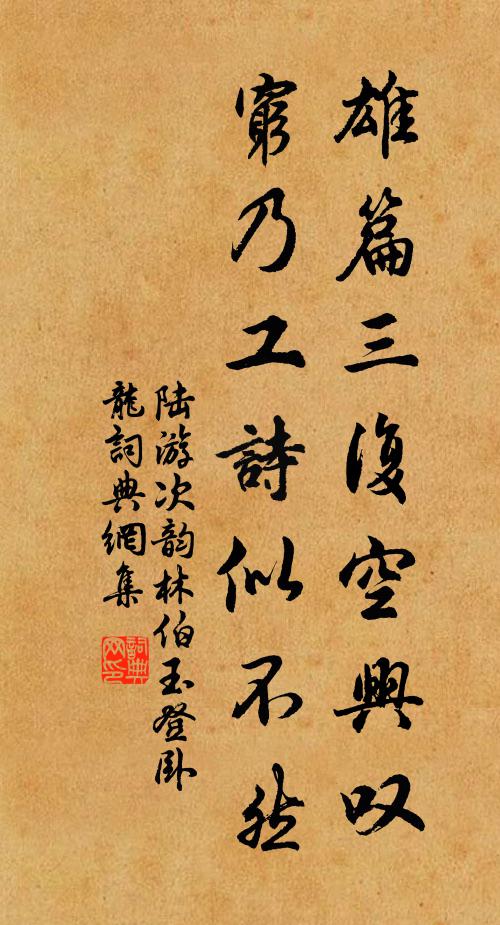 雄篇三復空興叹
窮乃工詩似不然
陆游次韵林伯玉登卧
龍詞典網集
詞典網印